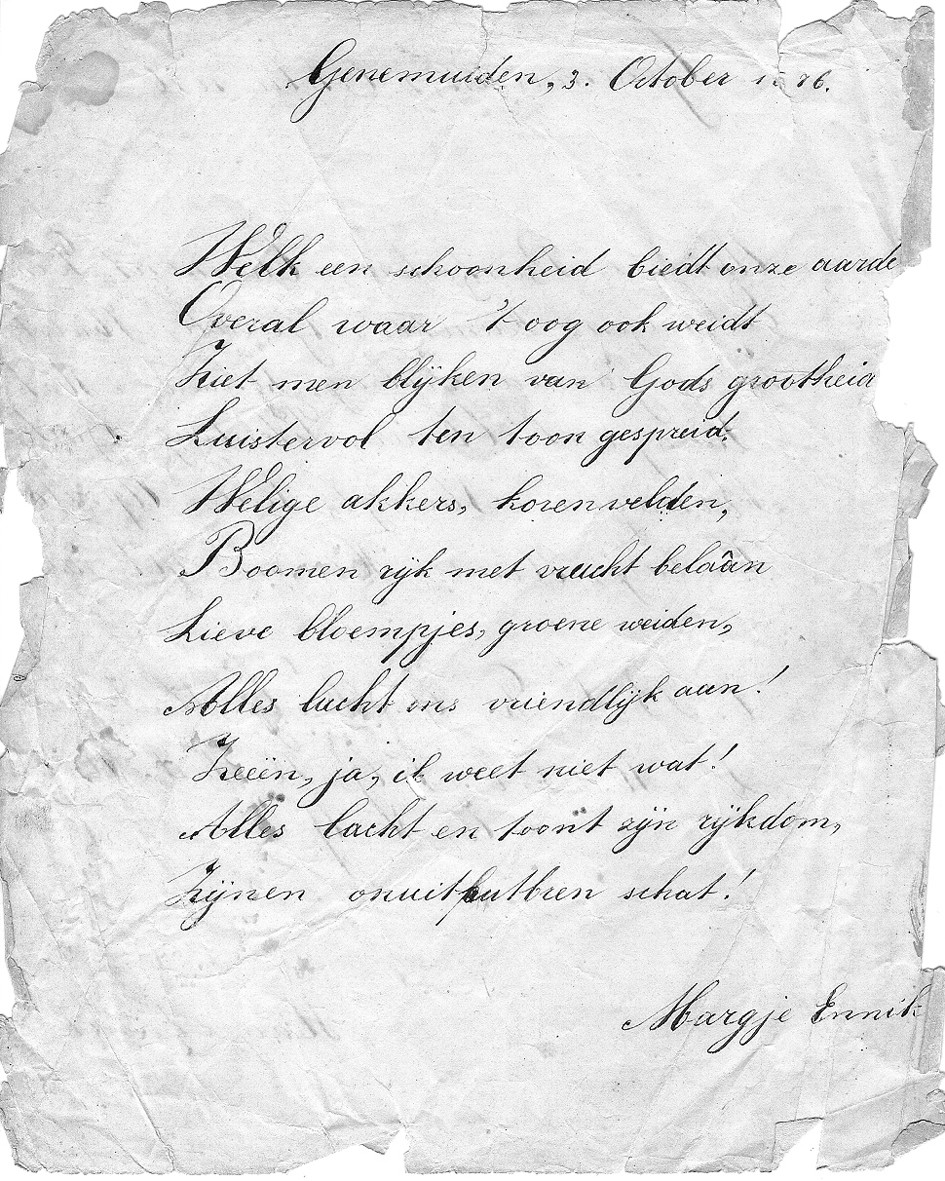 Genemuiden, 3. October 76.
Welk een schoonheid biedt onze aarde
Overal waar 't oog ook weidt
Ziet men blijken van Gods grootheid
Luistervol ten toon gespreid.
Welige akkers, korenvelden,
Boomen rijk met vrucht belaân
Lieve bloempjes, groene weiden,
Alles lacht ons vriendlijk aan!
Zeeën, ja, ik weet niet wat!
Alles lacht en toont zijn rijkdom,
Zijnen onuitputbren schat!
Margje Ennik